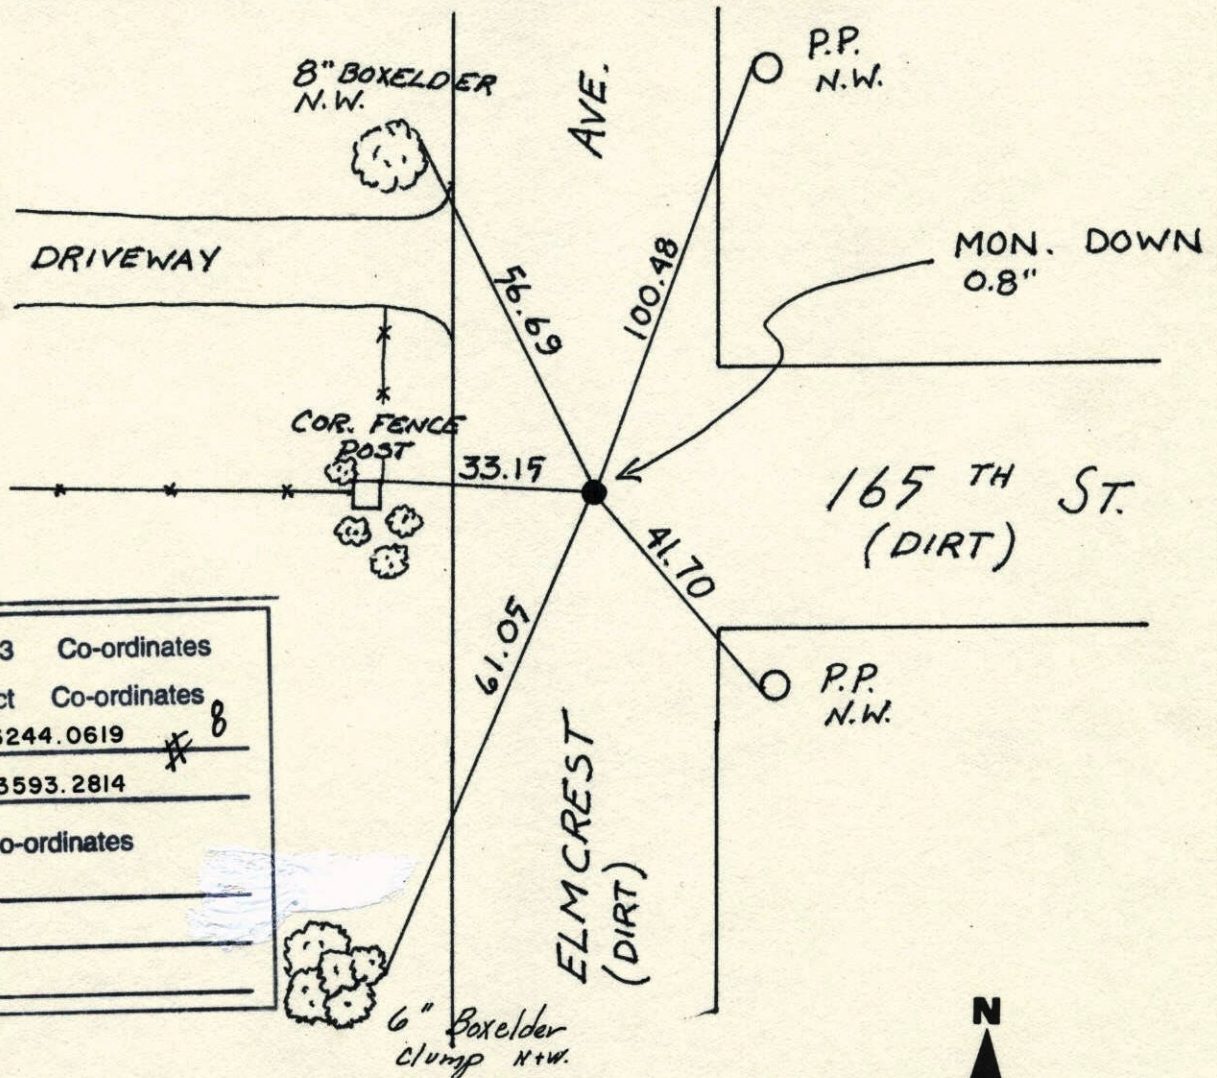 8" BOXELDER
N.W.
AVE.
P.P.
N.W.
DRIVEWAY
56.69
100.48
MON. DOWN
0.8"
COR. FENCE
POST
33.15
165 TH ST.
(DIRT)
41.70
61.05
3 Co-ordinates
ct Co-ordinates
6244.0619 # 8
3593.2814
o-ordinates
P.P.
N.W.
ELMCREST
(DIRT)
6" Boxelder
Clump N+W.
N